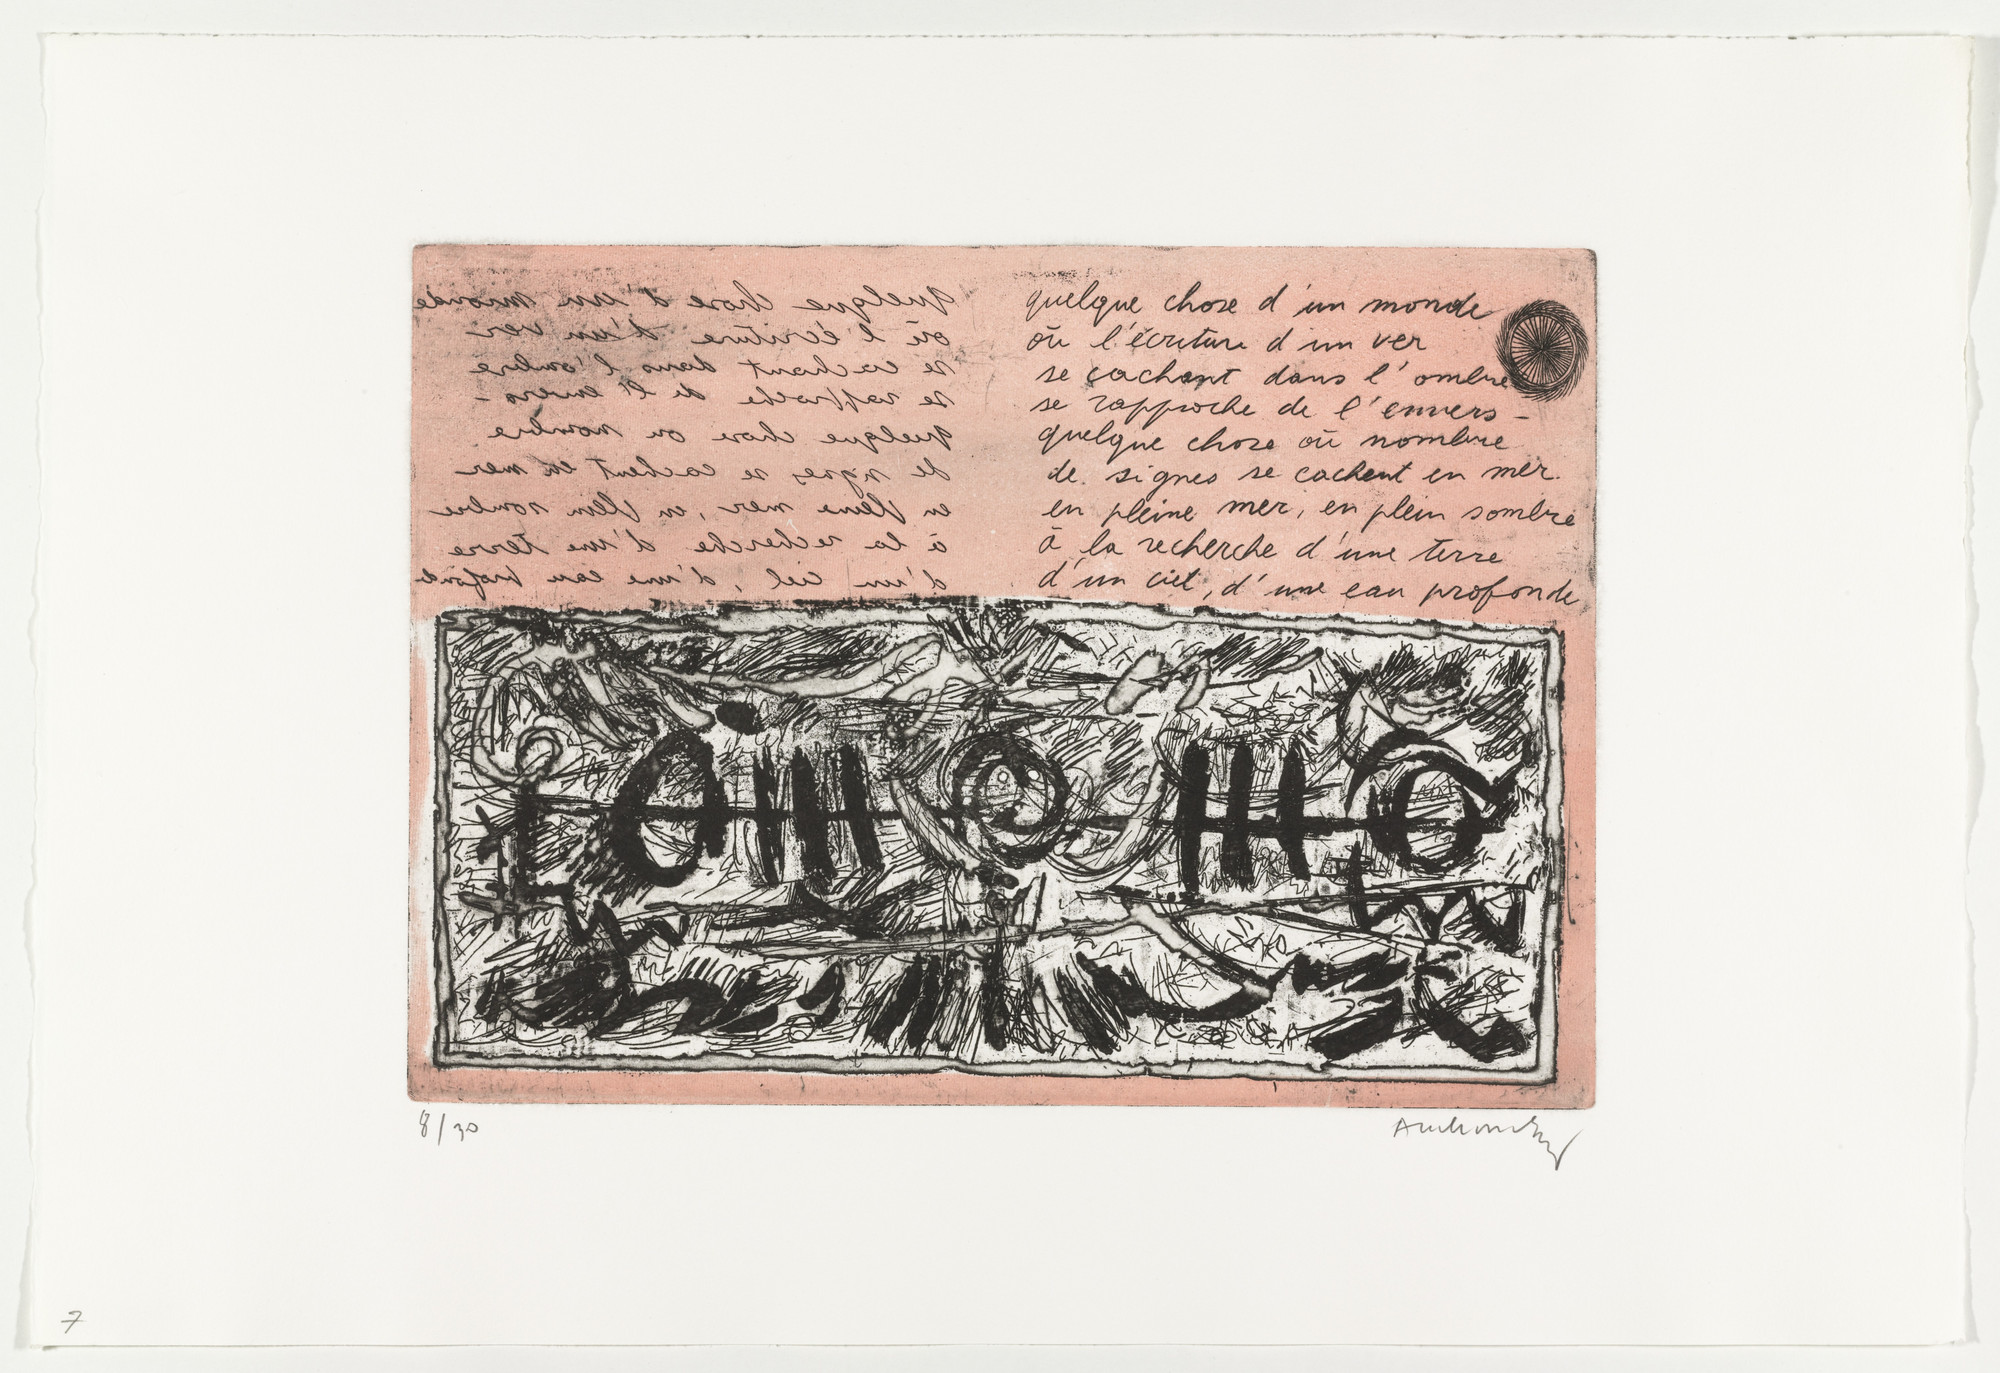 quelque chose d'un monde
où l'écriture d'un ver
se cachant dans l'ombre
se rapproche de l'envers -
quelque chose ou nombre
de signes se cachent en mer
en pleine mer, en plein sombre
à la recherche d'une terre
d'un ciel, d'une eau profonde
quelque chose d'un monde
où l'écriture d'un ver
se cachant dans l'ombre
se rapproche de l'envers -
quelque chose où nombre
de signes se cachent en mer.
en pleine mer, en plein sombre
à la recherche d'une terre
d'un ciel, d'une eau profonde
8/30
Alechinsky
7